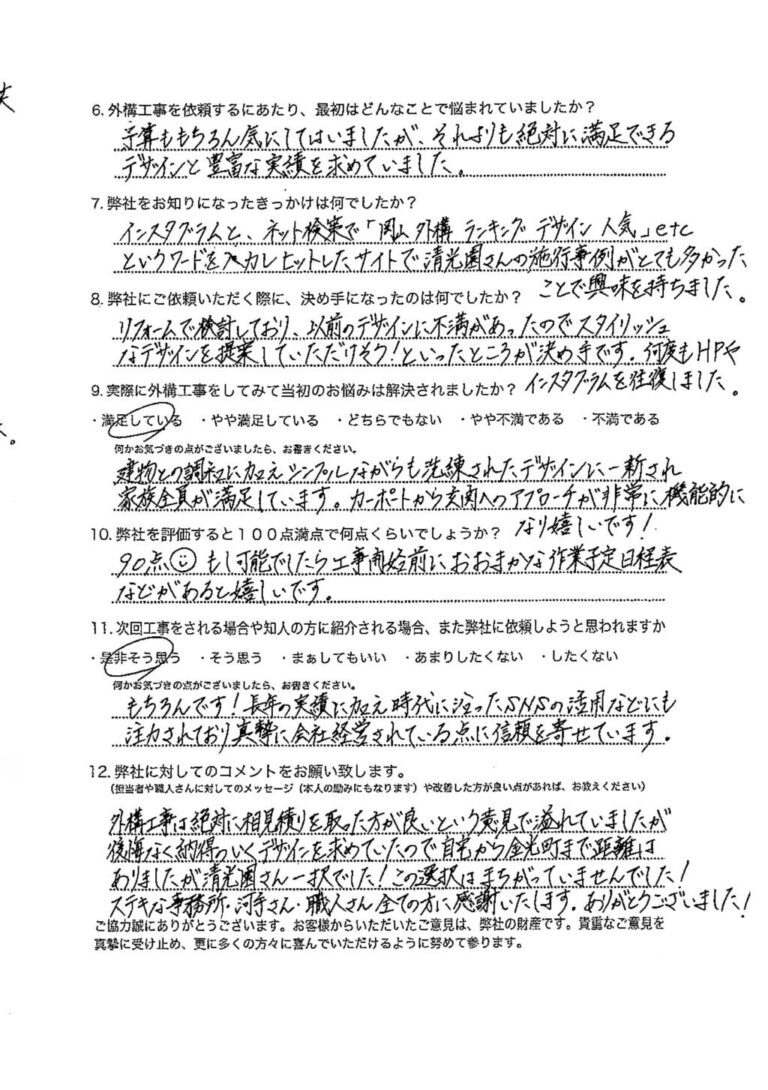 6. 外構工事を依頼するにあたり、最初はどんなことで悩まれていましたか？
予算ももちろん気にしてはいましたが、それよりも絶対に満足できる
デザインと豊富な実績を求めていました。
7. 弊社をお知りになったきっかけは何でしたか？
インスタグラムと、ネット検索で「岡山 外構 ランキング デザイン 人気」etc
というワードを入力しヒットしたサイトで清光園さんの施行事例がとても多かった
ことで興味を持ちました。
8. 弊社にご依頼いただく際に、決め手になったのは何でしたか？
リフォームで検討しており、以前のデザインに不満があったのでスタイリッシュ
なデザインを提案していただけそう！といったところが決め手です。何度もHPや
インスタグラムを往復しました。
9. 実際に外構工事をしてみて当初のお悩みは解決されましたか？
・満足している ・やや満足している ・どちらでもない ・やや不満である ・不満である
何かお気づきの点がございましたら、お書きください。
建物との調和に加えシンプルながらも洗練されたデザインに一新され
家族全員が満足しています。カーポートから玄関へのアプローチが非常に機能的に
なり嬉しいです！
10. 弊社を評価すると１００点満点で何点くらいでしょうか？
90点 もし可能でしたら工事開始前におおまかな作業予定日程表
などがあると嬉しいです。
11. 次回工事をされる場合や知人の方に紹介される場合、また弊社に依頼しようと思われますか
・是非そう思う ・そう思う ・まぁしてもいい ・あまりしたくない ・したくない
何かお気づきの点がございましたら、お書きください。
もちろんです！長年の実績に加え時代に沿ったSNSの活用などにも
注力されており真摯に会社経営されている点に信頼を寄せています。
12. 弊社に対してのコメントをお願い致します。
（担当者や職人さんに対してのメッセージ（本人の励みにもなります）や改善した方が良い点があれば、お教えください）
外構工事は絶対に相見積りを取った方が良いという意見で溢れていましたが
後悔なく納得のいくデザインを求めていたので自宅から金光町まで距離は
ありましたが清光園さん一択でした！この選択はまちがっていませんでした！
ステキな事務所・河手さん・職人さん全ての方に感謝いたします。ありがとうございました！
ご協力誠にありがとうございます。お客様からいただいたご意見は、弊社の財産です。貴重なご意見を
真摯に受け止め、更に多くの方々に喜んでいただけるように努めて参ります。